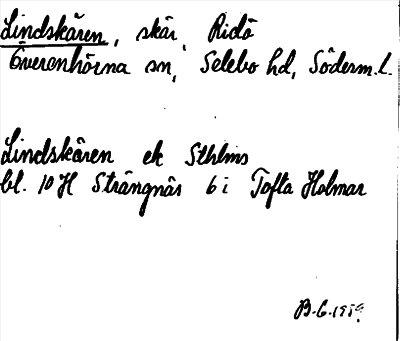 Lindskären, skär, Ridö
Överenhörna sn, Selebo hd, Söderm.l.
Lindskären ek Sthlms
bl. 10 H Strängnäs 6 i Tofta Holmar
B-G.